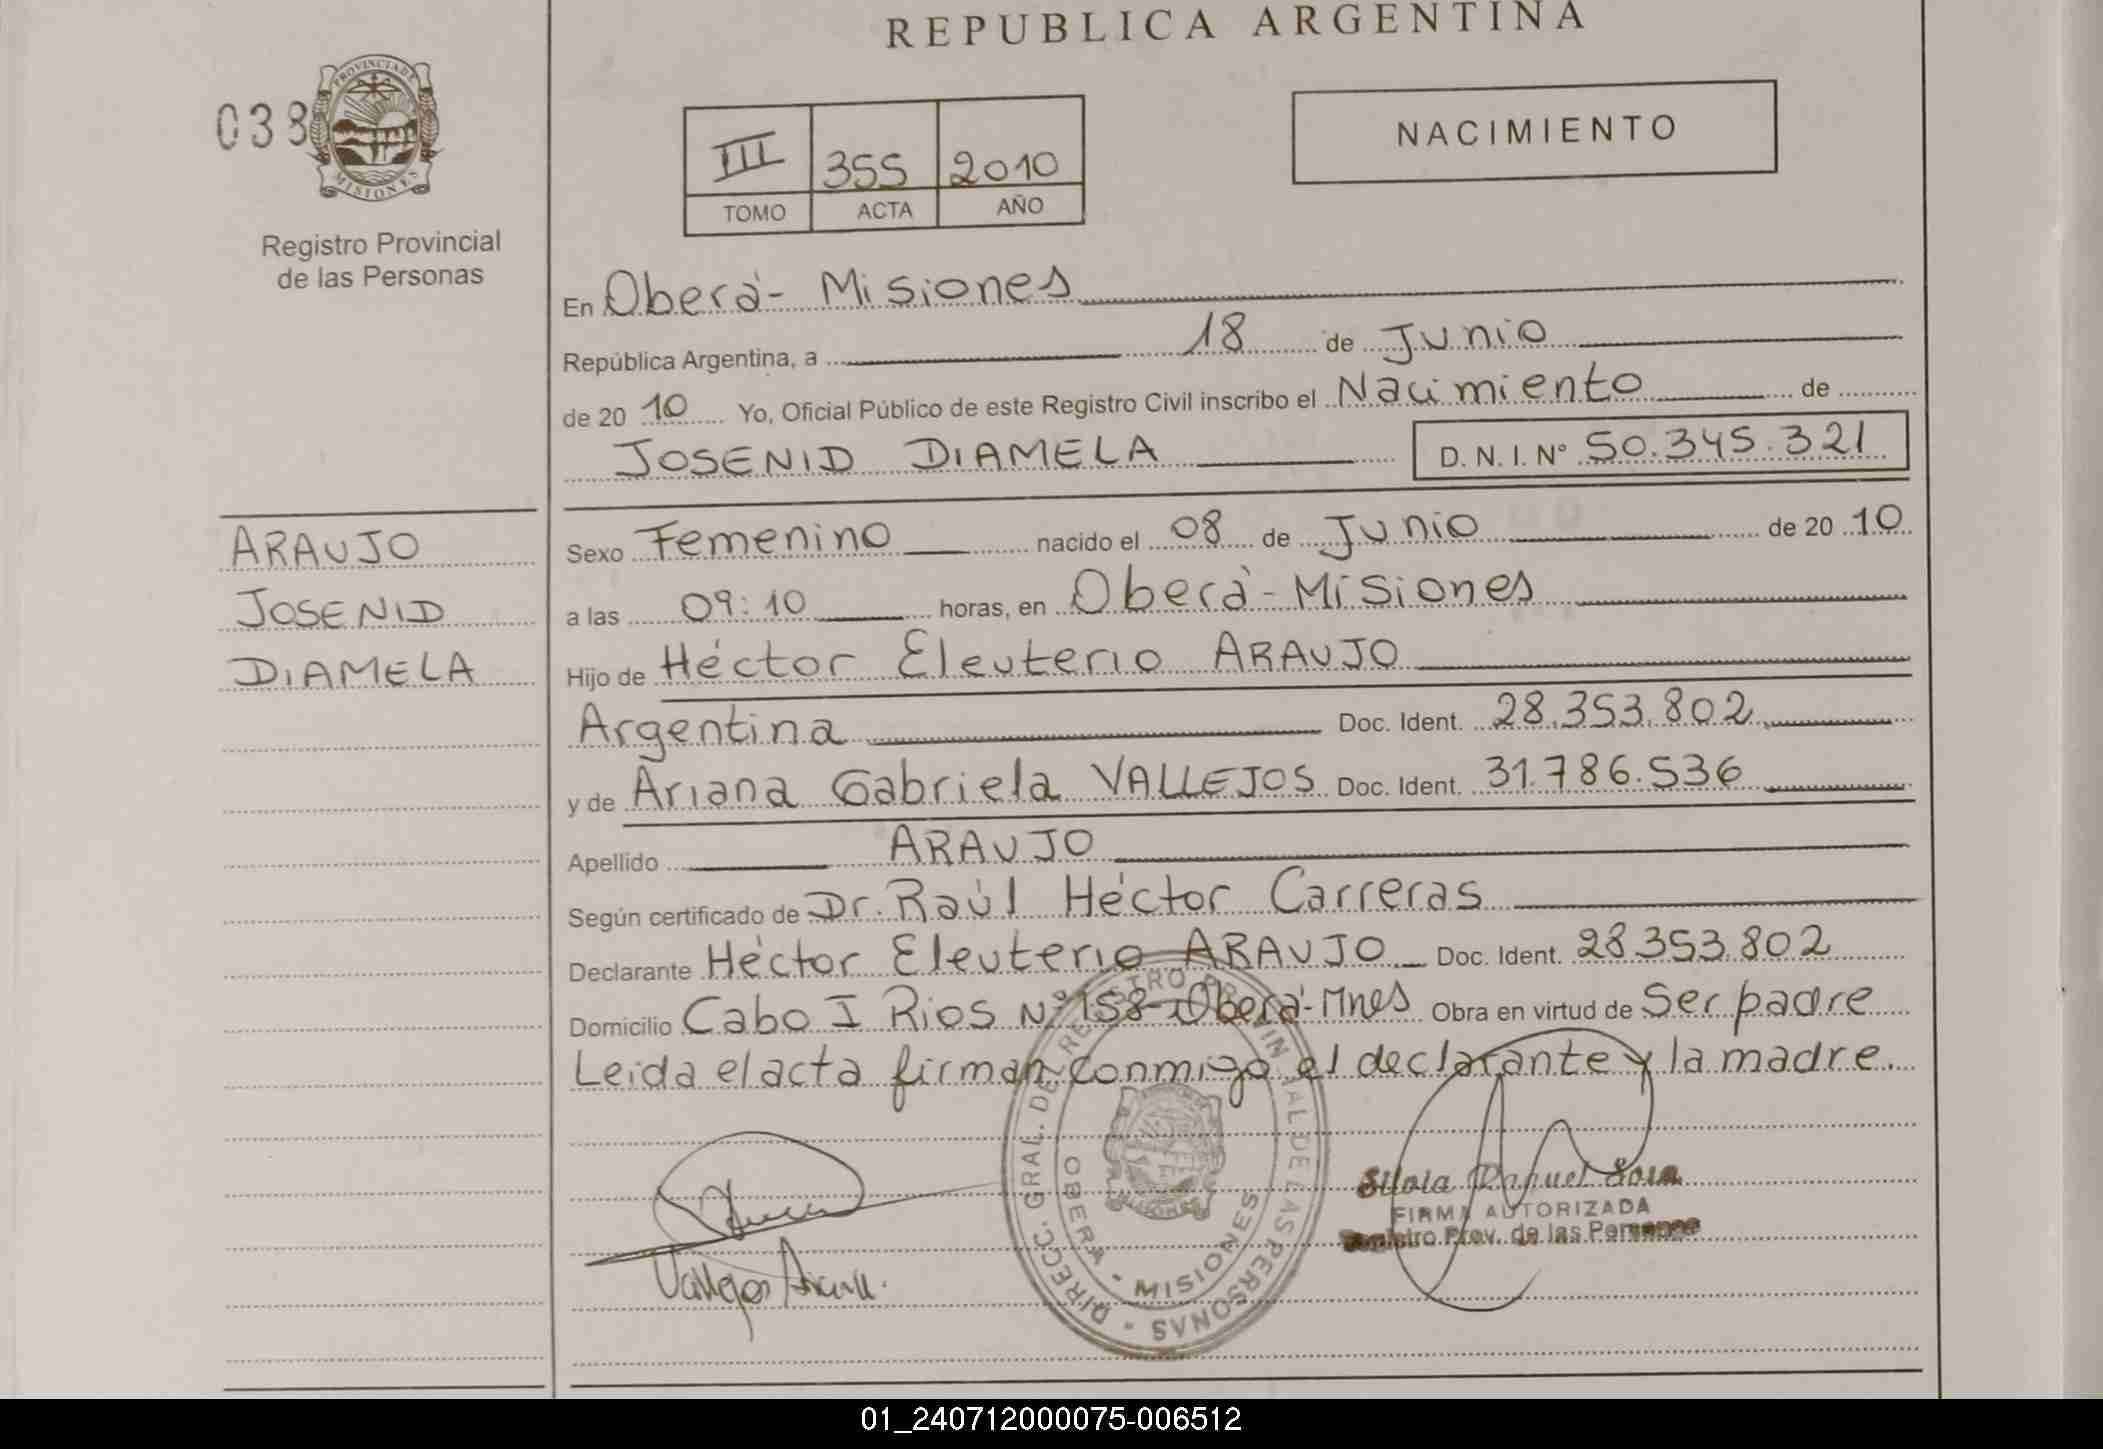 REPUBLICA ARGENTINA
038
PROVINCIA DE MISIONES
Registro Provincial
de las Personas
III 355 2010
TOMO ACTA AÑO
NACIMIENTO
En Oberá - Misiones
República Argentina, a 18 de Junio
de 2010 Yo, Oficial Público de este Registro Civil inscribo el Nacimiento de
JOSENID DIAMELA D. N. I. Nº 50.345.321
ARAUJO
JOSENID
DIAMELA
Sexo Femenino nacido el 08 de Junio de 2010
a las 09:10 horas, en Oberá - Misiones
Hijo de Héctor Eleuterio ARAUJO
Argentina Doc. Ident. 28.353.802
y de Ariana Gabriela VALLEJOS Doc. Ident. 31.786.536
Apellido ARAUJO
Según certificado de Dr. Raúl Héctor Carreras
Declarante Héctor Eleuterio ARAUJO Doc. Ident. 28.353.802
Domicilio Cabo I Rios Nº 158 - Oberá - Mnes Obra en virtud de Ser padre
Leida el acta firman conmigo el declarante y la madre.
DIRECC. GRAL. DEL REGISTRO PROVINCIAL DE LAS PERSONAS
OBERA - MISIONES
Vallejos
Silvia Raquel
FIRMA AUTORIZADA
Registro Prov. de las Personas
01_240712000075-006512